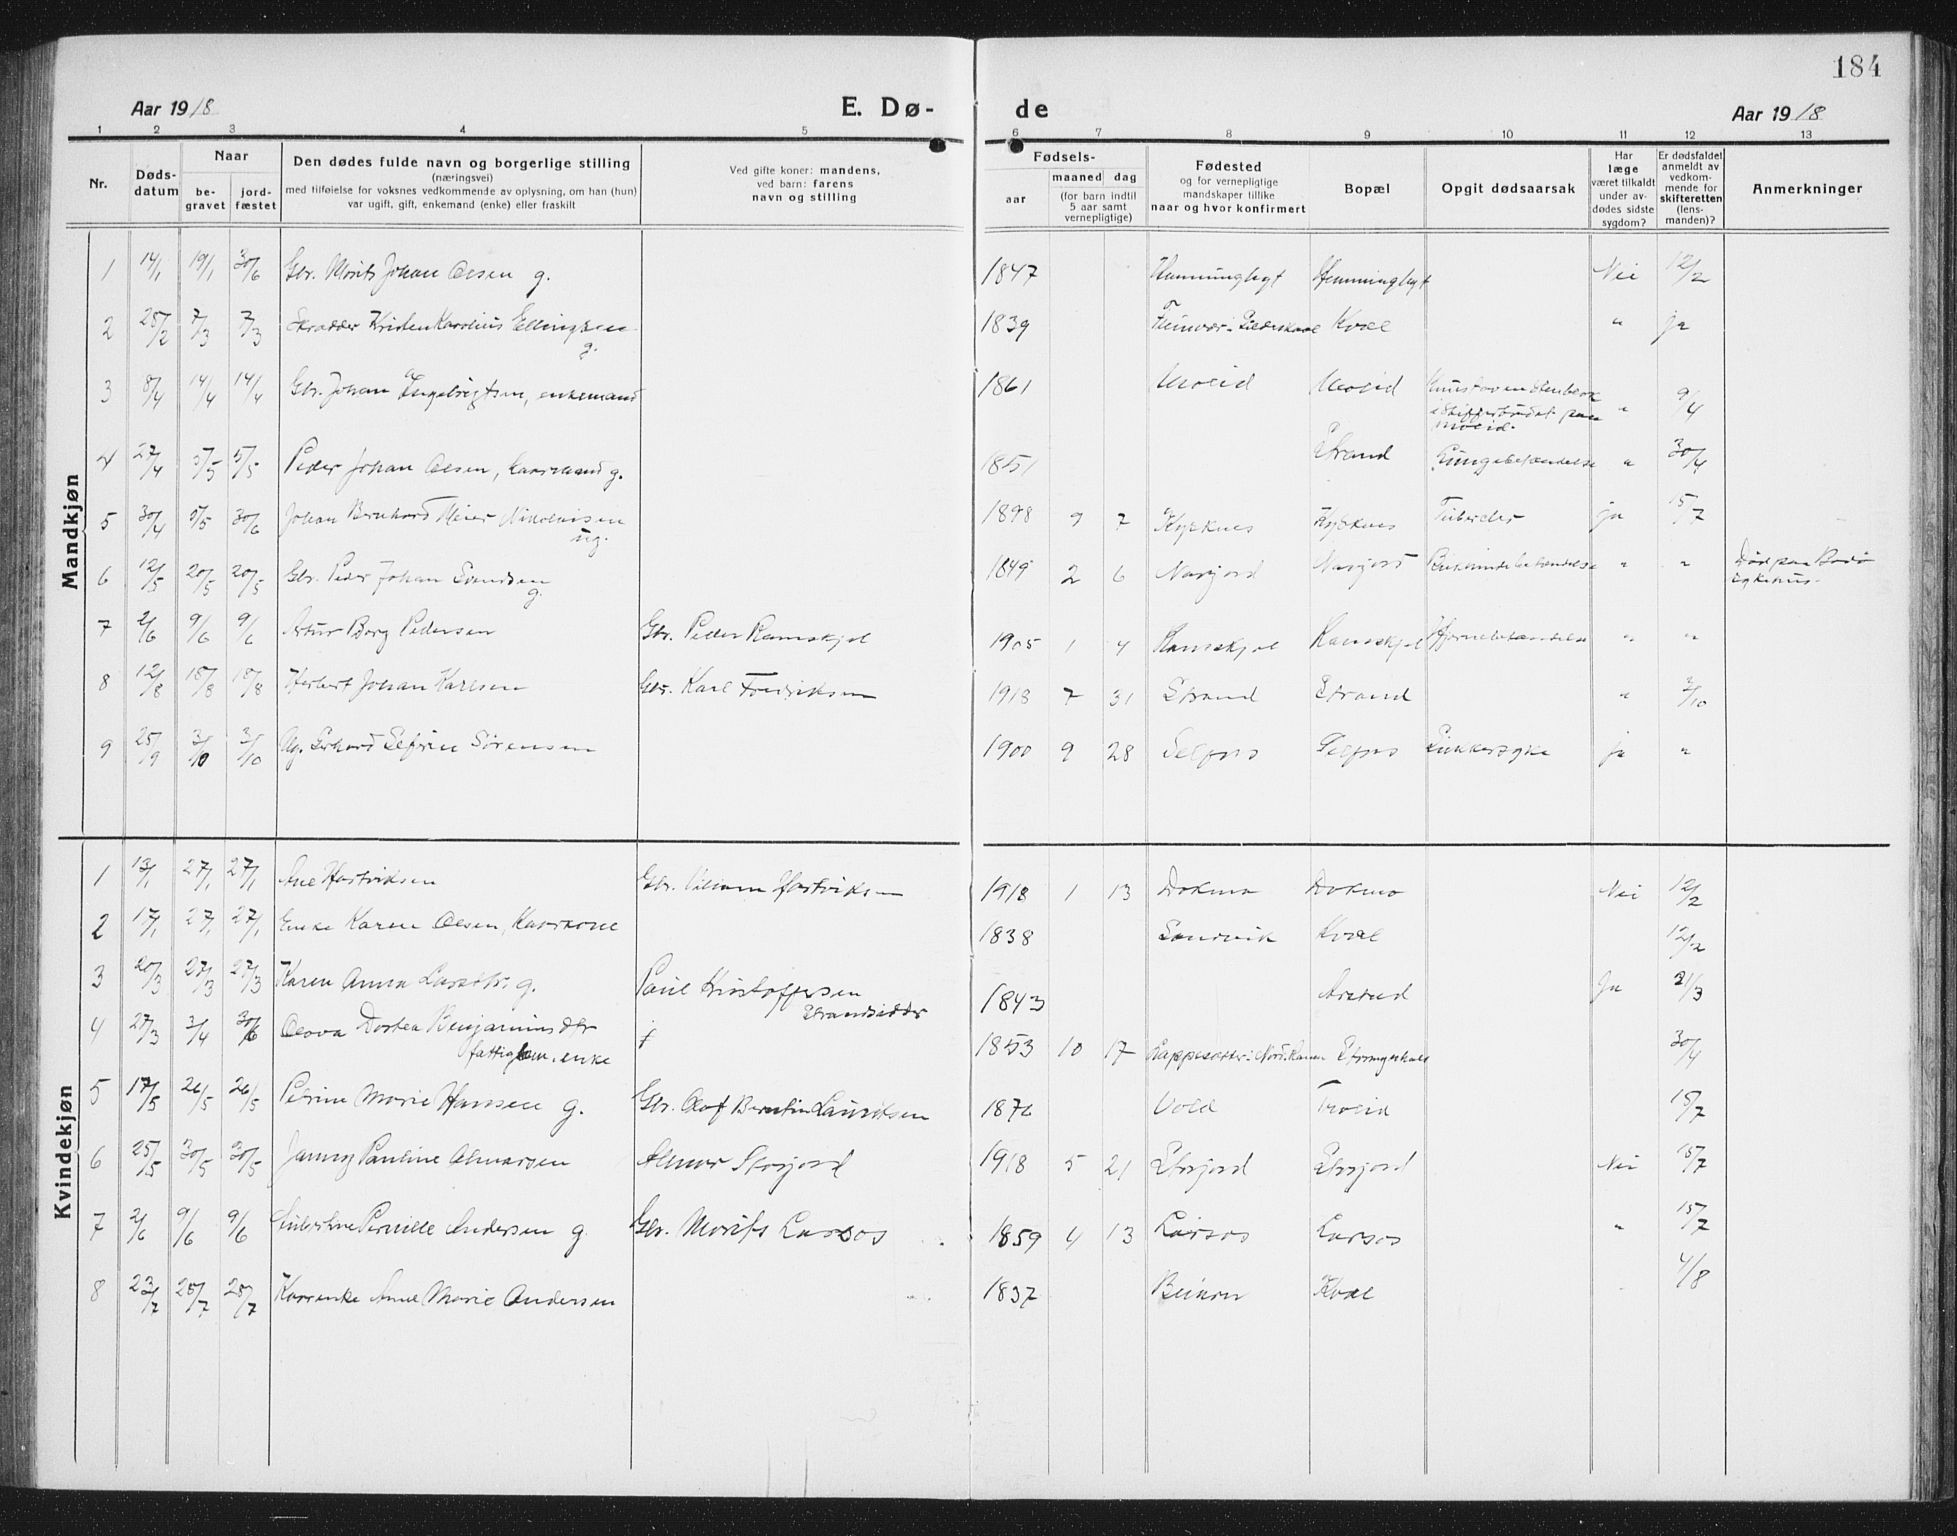 184
Aar 1918 E. Dø- de Aar 1918
1 2 3 4 5 6 7 8 9 10 11 12 13
Nr. Døds-datum Naar be-gravet jord-fæstet Den dødes fulde navn og borgerlige stilling (næringsvei) med tilføielse for voksnes vedkommende av oplysning, om han (hun) var ugift, gift, enkemand (enke) eller fraskilt Ved gifte koner: mandens, ved barn: farens navn og stilling Fødsels- aar maaned dag (for barn indtil 5 aar samt vernepligtige) Fødested og for vernepligtige mandskaper tillike naar og hvor konfirmert Bopæl Opgit dødsaarsak Har læge været tilkaldt under av-dødes sidste sygdom? Er dødsfaldet anmeldt av vedkom-mende for skifteretten (lens-manden)? Anmerkninger
Mandkjøn
1 14/1 19/1 30/6 Gbr. Morits Johan Olsen g. 1847 Hemminghyt Hemminghyt Nei 12/2
2 25/2 7/3 7/3 Skrædder Kristen Karolius Ellingsen g. 1839 Kvæl " ja
3 8/4 14/4 14/4 Gbr. Johan Engebrigtsen, enkemand 1861 Moeid Moeid " 9/4
4 27/4 5/5 5/5 Peder Johan Olsen, kaarmand g. 1851 Strand Lungebetændelse " 30/4
5 30/4 9/5 30/6 Johan Bernhard Meier Nikolaisen ug. 1898 9 7 Kjelknes Kjelknes Tuberclor ja 15/7
6 12/5 20/5 20/5 Gbr. Peder Johan Svendsen g. 1849 2 6 Navjord Navjord " " Død paa Bodø sykehus.
7 2/6 9/6 9/6 Artur Borg Pedersen Gbr. Peder Ramskjel 1905 1 4 Ramskjel Ramskjel Hjernebetændelse " "
8 12/8 18/8 18/8 Herbert Johan Karlsen Gbr. Karl Fredriksen 1918 7 31 Strand Strand " 2/10
9 25/9 3/10 3/10 Ug. Erhard Elfrin Sørensen 1900 9 28 Selfors Selfors Sukkersyke ja "
Kvindekjøn
1 13/1 27/1 27/1 Ane Hartviksen Gbr. Viliam Hartviksen 1918 1 13 Dokmo Dokmo Nei 12/2
2 17/1 27/1 27/1 Enke Karen Olsen, Kaarkone 1838 Sandvik Kvæl 12/2
3 20/3 27/3 27/3 Karen Anna Larsdtr. g. Paul Kristoffersen Strandsidder 1843 Arstad Ja 21/3
4 27/3 3/4 30/6 Olava Dortea Benjaminsdtr fattiglem, enke † 1853 10 17 30/4
5 17/5 26/5 26/5 Petrine Marie Hansen g. Gbr. Olof Berntin Lauritsen 1876 Vold Troeid 15/7
6 25/5 30/5 30/5 Janny Pauline Almarsen Almar Storjord 1918 5 21 Storjord Storjord Nei 15/7
7 2/6 9/6 9/6 Pernille Andersen g. Gbr. Morits Larsos 1859 4 13 Larsos Larsos " 15/7
8 23/7 28/7 28/7 Kaarenke Anne Marie Andersen 1837 Beiarn Kvæl 4/8